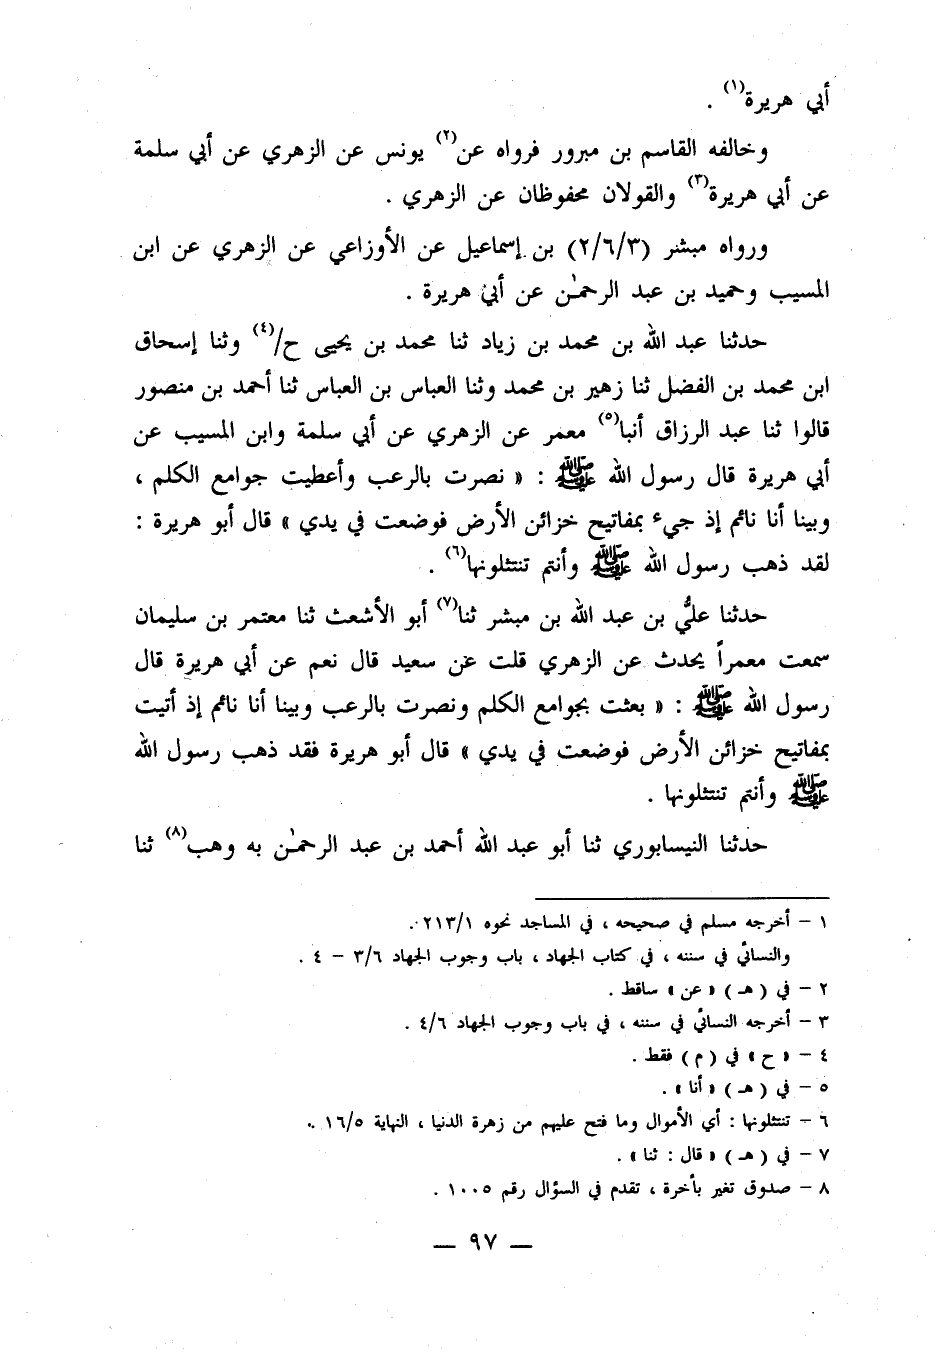 أبي هريرة(١) .
وخالفه القاسم بن مبرور فرواه عن(٢) يونس عن الزهري عن أبي سلمة
عن أبي هريرة(٣) والقولان محفوظان عن الزهري .
ورواه مبشر (٢/٦/٣) بن إسماعيل عن الأوزاعي عن الزهري عن ابن
المسيب وحميد بن عبد الرحمٰن عن أبي هريرة .
حدثنا عبد الله بن محمد بن زياد ثنا محمد بن يحيى ح/(٤) وثنا إسحاق
ابن محمد بن الفضل ثنا زهير بن محمد وثنا العباس بن العباس ثنا أحمد بن منصور
قالوا ثنا عبد الرزاق أنبا(٥) معمر عن الزهري عن أبي سلمة وابن المسيب عن
أبي هريرة قال رسول الله ﷺ : « نصرت بالرعب وأعطيت جوامع الكلم ،
وبينا أنا نائم إذ جيء بمفاتيح خزائن الأرض فوضعت في يدي » قال أبو هريرة :
لقد ذهب رسول الله ﷺ وأنتم تنتثلونها(٦) .
حدثنا عليُّ بن عبد الله بن مبشر ثنا(٧) أبو الأشعث ثنا معتمر بن سليمان
سمعت معمراً يحدث عن الزهري قلت عن سعيد قال نعم عن أبي هريرة قال
رسول الله ﷺ : « بعثت بجوامع الكلم ونصرت بالرعب وبينا أنا نائم إذ أتيت
بمفاتيح خزائن الأرض فوضعت في يدي » قال أبو هريرة فقد ذهب رسول الله
ﷺ وأنتم تنتثلونها .
حدثنا النيسابوري ثنا أبو عبد الله أحمد بن عبد الرحمٰن به وهب(٨) ثنا
١ – أخرجه مسلم في صحيحه ، في المساجد نحوه ٢١٣/١ .
والنسائي في سننه ، في كتاب الجهاد ، باب وجوب الجهاد ٣/٦ – ٤ .
٢ – في ( هـ ) « عن » ساقط .
٣ – أخرجه النسائي في سننه ، في باب وجوب الجهاد ٤/٦ .
٤ – « ح » في ( م ) فقط .
٥ – في ( هـ ) « أنا » .
٦ – تنتثلونها : أي الأموال وما فتح عليهم من زهرة الدنيا ، النهاية ١٦/٥ .
٧ – في ( هـ ) « قال : ثنا » .
٨ – صدوق تغير بأخرة ، تقدم في السؤال رقم ١٠٠٥ .
— ٩٧ —